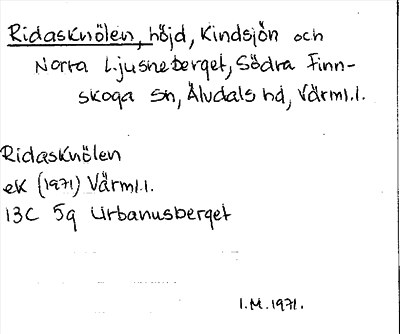 Ridasknölen, höjd, Kindsjön och
Norra Ljusneberget, Södra Finn-
skoga sn, Älvdals hd, Värml.l.
Ridasknölen
ek (1971) Värml.l.
13C 5g Urbanusberget
I.M.1971.